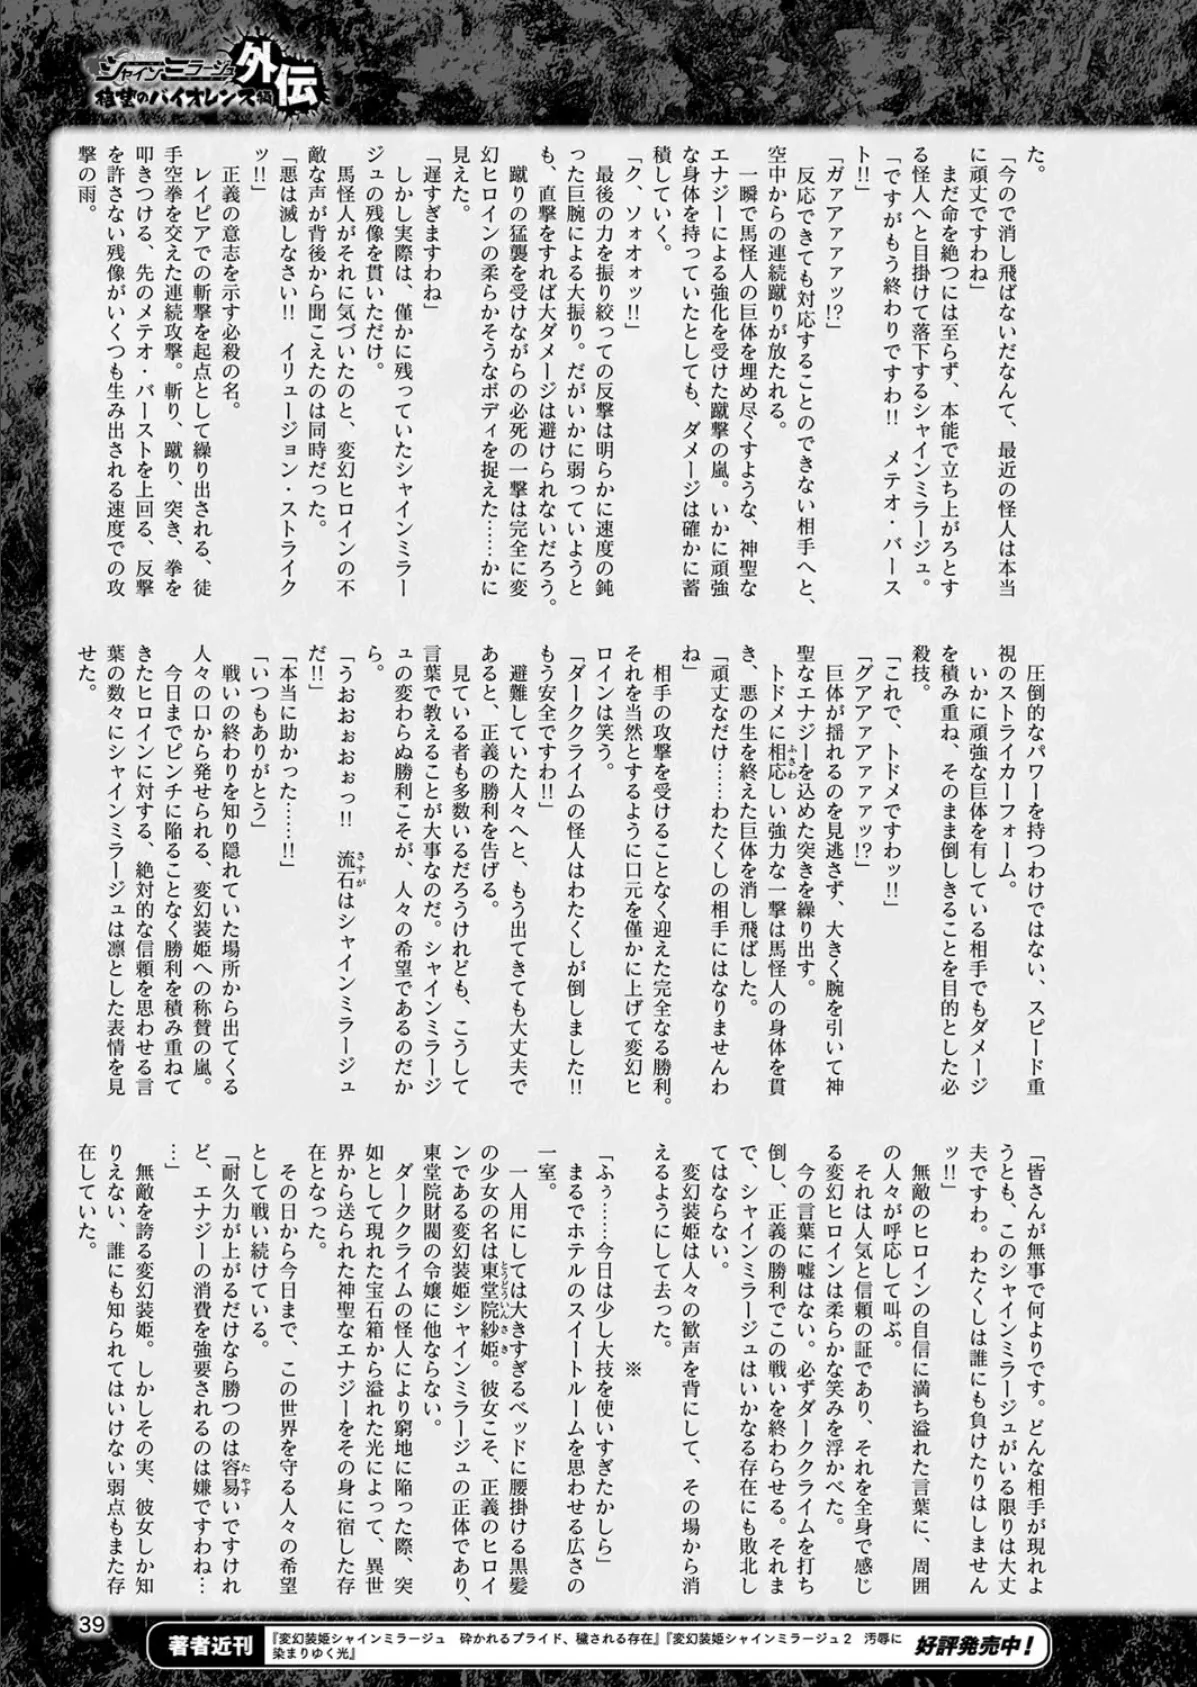 シャインミラージュ 外伝
待望のバイオレンス編
た。
「今ので消し飛ばないだなんて、最近の怪人は本当
に頑丈ですわね」
まだ命を絶つには至らず、本能で立ち上がろとす
る怪人へと目掛けて落下するシャインミラージュ。
「ですがもう終わりですわ!! メテオ・バース
ト!!」
「ガァアァァァッ!?」
反応できても対応することのできない相手へと、
空中からの連続蹴りが放たれる。
一瞬で馬怪人の巨体を埋め尽くすような、神聖な
エナジーによる強化を受けた蹴撃の嵐。いかに頑強
な身体を持っていたとしても、ダメージは確かに蓄
積していく。
「ク、ソォオォッ!!」
最後の力を振り絞っての反撃は明らかに速度の鈍
った巨腕による大振り。だがいかに弱っていようと
も、直撃をすれば大ダメージは避けられないだろう。
蹴りの猛襲を受けながらの必死の一撃は完全に変
幻ヒロインの柔らかそうなボディを捉えた……かに
見えた。
「遅すぎますわね」
しかし実際は、僅かに残っていたシャインミラー
ジュの残像を貫いただけ。
馬怪人がそれに気づいたのと、変幻ヒロインの不
敵な声が背後から聞こえたのは同時だった。
「悪は滅しなさい!! イリュージョン・ストライク
ッ!!」
正義の意志を示す必殺の名。
レイピアでの斬撃を起点として繰り出される、徒
手空拳を交えた連続攻撃。斬り、蹴り、突き、拳を
叩きつける、先のメテオ・バーストを上回る、反撃
を許さない残像がいくつも生み出される速度での攻
撃の雨。
圧倒的なパワーを持つわけではない、スピード重
視のストライカーフォーム。
いかに頑強な巨体を有している相手でもダメージ
を積み重ね、そのまま倒しきることを目的とした必
殺技。
「これで、トドメですわッ!!」
「グアアァアァァァッ!?」
巨体が揺れるのを見逃さず、大きく腕を引いて神
聖なエナジーを込めた突きを繰り出す。
トドメに相応しい強力な一撃は馬怪人の身体を貫
き、悪の生を終えた巨体を消し飛ばした。
「頑丈なだけ……わたくしの相手にはなりませんわ
ね」
相手の攻撃を受けることなく迎えた完全なる勝利。
それを当然とするように口元を僅かに上げて変幻ヒ
ロインは笑う。
「ダーククライムの怪人はわたくしが倒しました!!
もう安全ですわ!!」
避難していた人々へと、もう出てきても大丈夫で
あると、正義の勝利を告げる。
見ている者も多数いるだろうけれども、こうして
言葉で教えることが大事なのだ。シャインミラージ
ュの変わらぬ勝利こそが、人々の希望であるのだか
ら。
「うおぉぉおぉっ!! 流石はシャインミラージュ
だ!!」
「本当に助かった……!!」
「いつもありがとう」
戦いの終わりを知り隠れていた場所から出てくる
人々の口から発せられる、変幻装姫への称賛の嵐。
今日までピンチに陥ることなく勝利を積み重ねて
きたヒロインに対する、絶対的な信頼を思わせる言
葉の数々にシャインミラージュは凛とした表情を見
せた。
「皆さんが無事で何よりです。どんな相手が現れよ
うとも、このシャインミラージュがいる限りは大丈
夫ですわ。わたくしは誰にも負けたりはしません
ッ!!」
無敵のヒロインの自信に満ち溢れた言葉に、周囲
の人々が呼応して叫ぶ。
それは人気と信頼の証であり、それを全身で感じ
る変幻ヒロインは柔らかな笑みを浮かべた。
今の言葉に嘘はない。必ずダーククライムを打ち
倒し、正義の勝利でこの戦いを終わらせる。それま
で、シャインミラージュはいかなる存在にも敗北し
てはならない。
変幻装姫は人々の歓声を背にして、その場から消
えるようにして去った。
※
「ふぅ……今日は少し大技を使いすぎたかしら」
まるでホテルのスイートルームを思わせる広さの
一室。
一人用にしては大きすぎるベッドに腰掛ける黒髪
の少女の名は東堂院紗姫。彼女こそ、正義のヒロイ
ンである変幻装姫シャインミラージュの正体であり、
東堂院財閥の令嬢に他ならない。
ダーククライムの怪人により窮地に陥った際、突
如として現れた宝石箱から溢れた光によって、異世
界から送られた神聖なエナジーをその身に宿した存
在となった。
その日から今日まで、この世界を守る人々の希望
として戦い続けている。
「耐久力が上がるだけなら勝つのは容易いですけれ
ど、エナジーの消費を強要されるのは嫌ですわね…
…」
無敵を誇る変幻装姫。しかしその実、彼女しか知
りえない、誰にも知られてはいけない弱点もまた存
在していた。
39
著者近刊
『変幻装姫シャインミラージュ 砕かれるプライド、穢される存在』『変幻装姫シャインミラージュ2 汚辱に
染まりゆく光』
好評発売中!